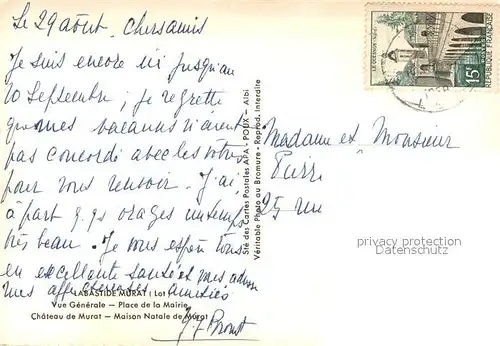 Le 29 août. Chers amis
Je suis encore ici jusqu'au
10 Septembre ; je regrette
que mes vacances n'aient
pas concordé avec les vôtres
pour vous revoir. J'ai,
à part q.qs orages un temps
très beau. Je vous espère tous
en excellente santé et vous adresse
mes affectueuses amitiés
LABASTIDE MURAT ( Lot )
Vue Générale — Place de la Mairie
Château de Murat — Maison Natale de Murat
Sté des Cartes Postales APA - POUX - Albi
Véritable Photo au Bromure - Reprod. Interdite
LE QUESNOY (Nord)
15F
POSTES
REPUBLIQUE FRANÇAISE
Madame et Monsieur
25 rue
privacy protection
Datenschutz